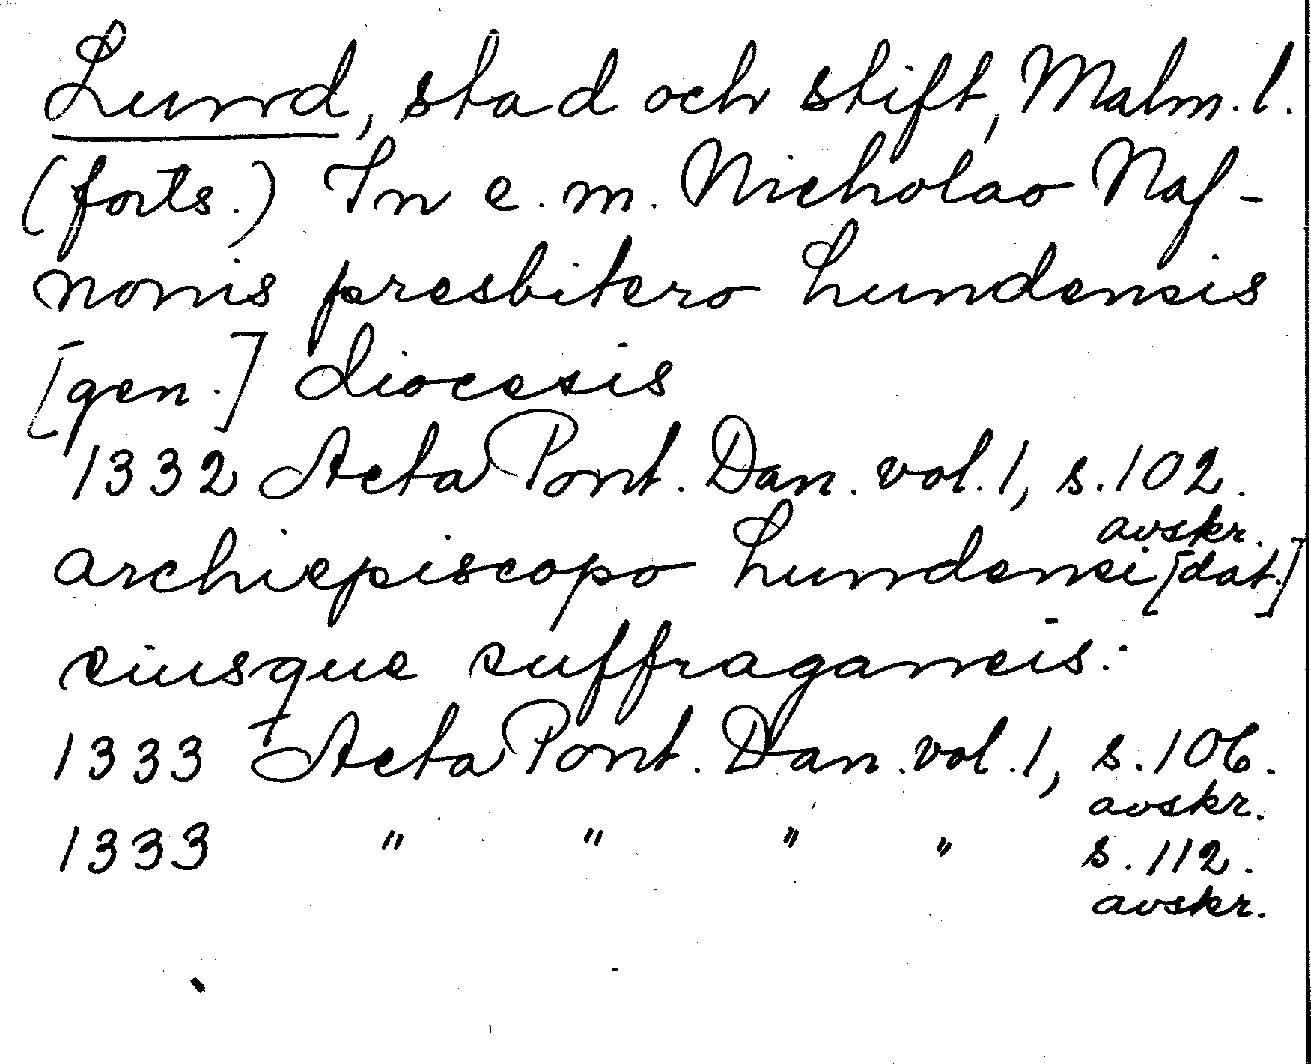 Lund, stad och stift, Malm. l.
(forts.) In e. m. Nicholao Naf-
nonis presbitero Lundensis
[gen.] diocesis
1332 Acta Pont. Dan. vol. 1, s. 102.
avskr.
archiepiscopo Lundensi [dat.]
eiusque suffraganeis:
1333 Acta Pont. Dan. vol. 1, s. 106.
avskr.
1333 " " " " s. 112.
avskr.